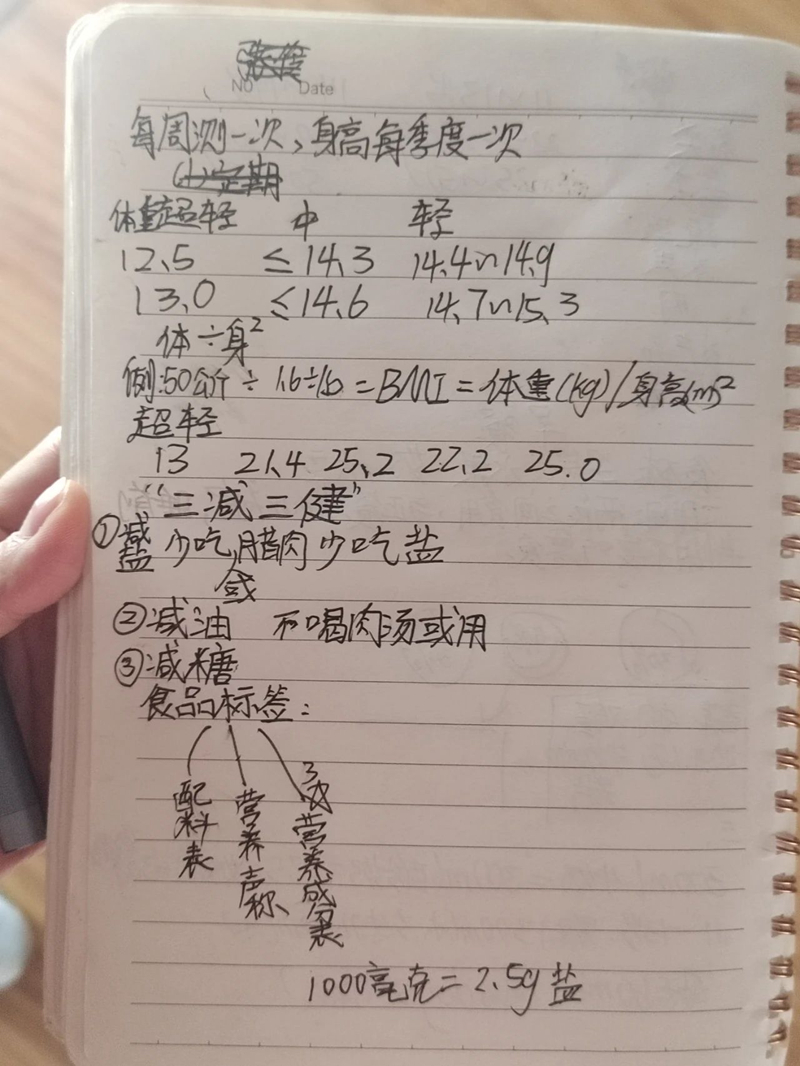 No Date
每周测一次,身高每季度一次
(1)定期
体重超轻 中 轻
12.5 ≤14.3 14.4~14.9
13.0 ≤14.6 14.7~15.3
体÷身²
例:50公斤÷1.6÷1.6=BMI=体重(kg)/身高(m)²
超轻
13 21.4 25.2 22.2 25.0
“三减三健”
①减盐 少吃腊肉少吃盐
或
②减油 不喝肉汤或用
③减糖
食品标签:
配料表
营养声称
营养成分表
1000毫克=2.5g盐